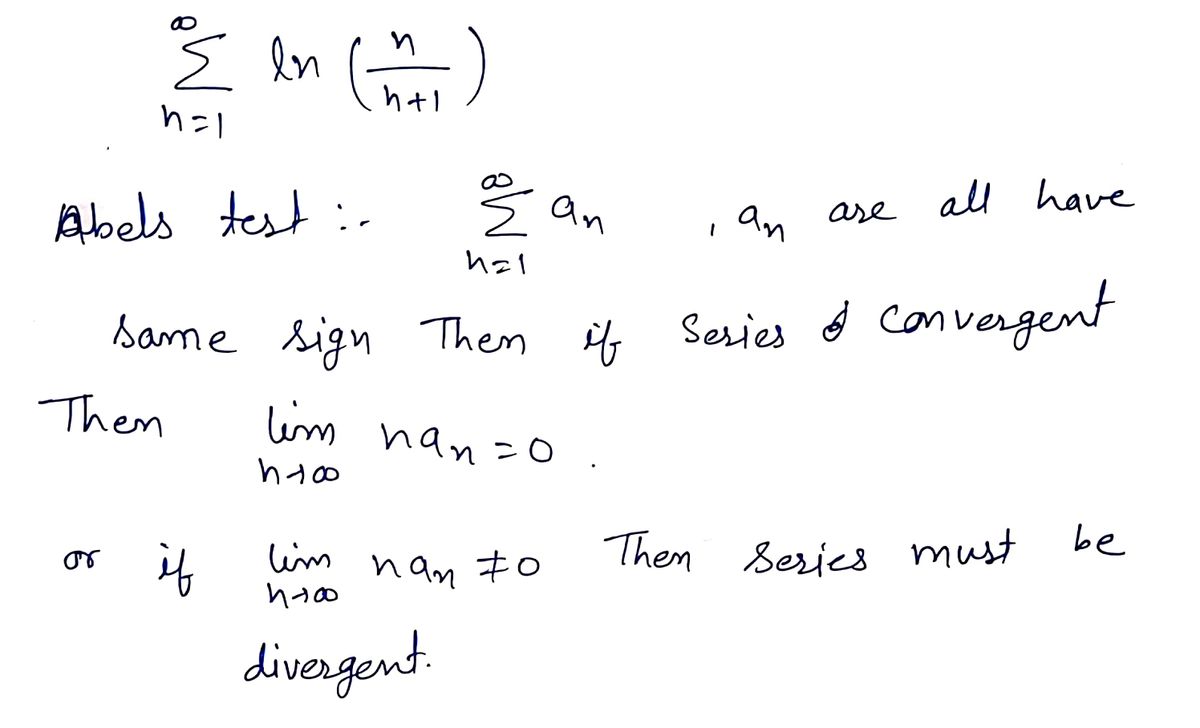 ∞
Σ ln (n/n+1)
n=1
Abels test :- ∞Σn=1 an , an are all have
same sign Then if Series convergent
Then lim n→∞ nan = 0 .
or if lim n→∞ nan ≠ 0 Then series must be
divergent.